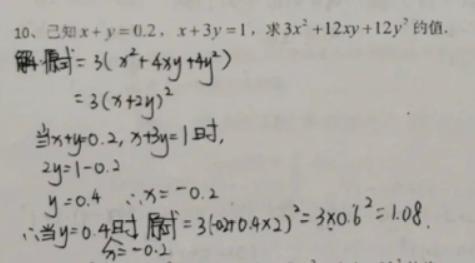 10、已知x+y=0.2，x+3y=1，求3x²+12xy+12y²的值.
解:原式=3(x²+4xy+4y²)
=3(x+2y)²
当x+y=0.2, x+3y=1时,
2y=1-0.2
y=0.4 ∴x=-0.2
∴当y=0.4时 原式=3(-0.2+0.4×2)²=3×0.6²=1.08.
x=-0.2